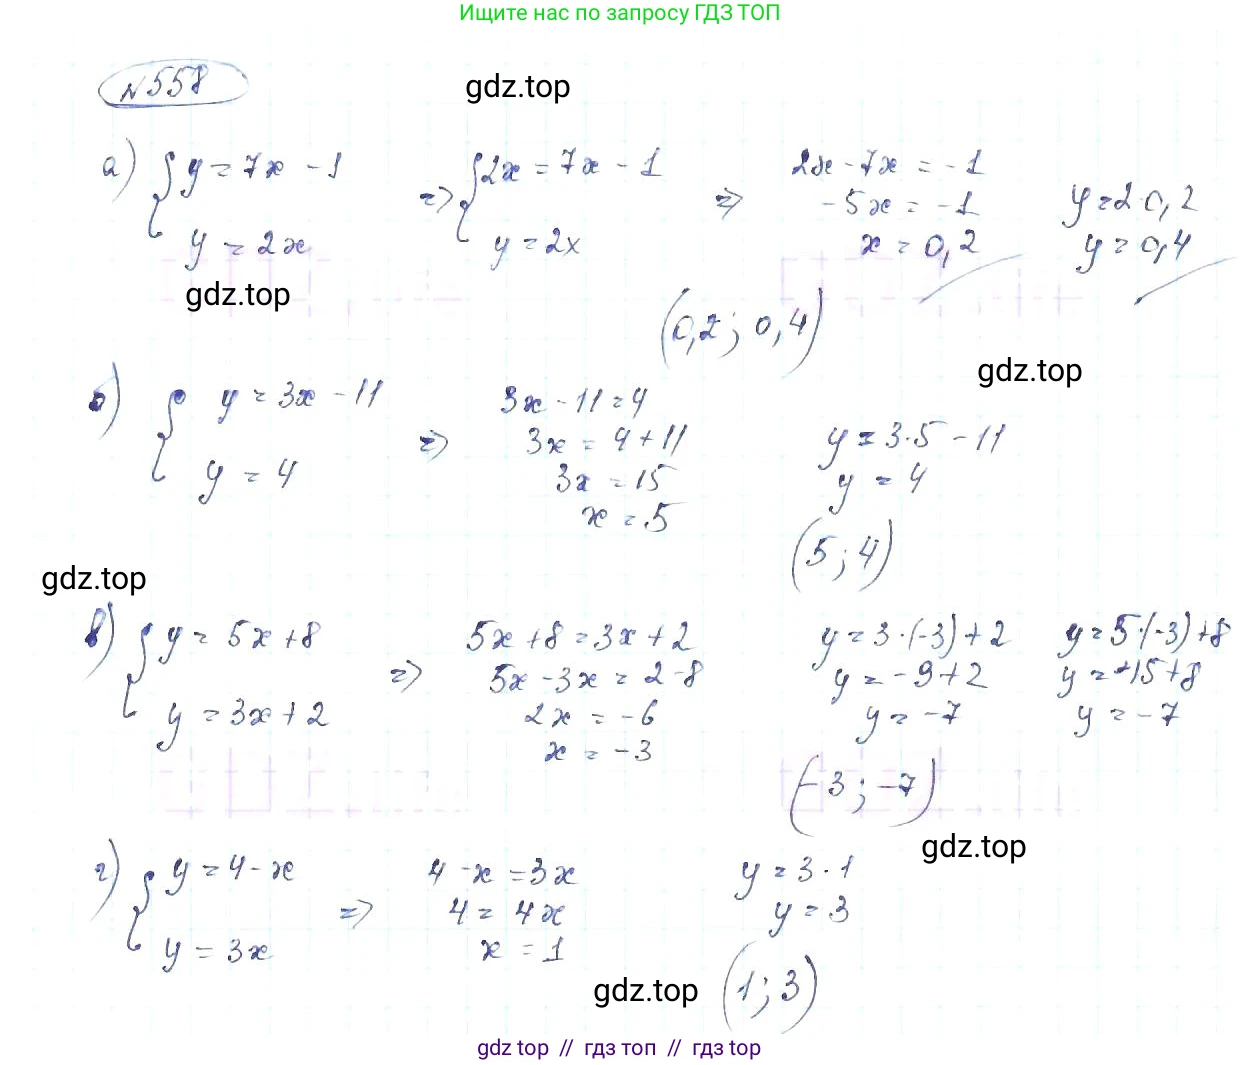 Ищите нас по запросу ГДЗ ТОП
№558
gdz.top
а) { y = 7x - 1
y = 2x
=> { 2x = 7x - 1
y = 2x
=> 2x - 7x = -1
-5x = -1
x = 0,2
y = 2·0,2
y = 0,4
gdz.top
(0,2; 0,4)
gdz.top
б) { y = 3x - 11
y = 4
=> 3x - 11 = 4
3x = 4 + 11
3x = 15
x = 5
y = 3·5 - 11
y = 4
(5; 4)
gdz.top
в) { y = 5x + 8
y = 3x + 2
=> 5x + 8 = 3x + 2
5x - 3x = 2 - 8
2x = -6
x = -3
y = 3·(-3) + 2
y = -9 + 2
y = -7
y = 5·(-3) + 8
y = -15 + 8
y = -7
(-3; -7)
gdz.top
г) { y = 4 - x
y = 3x
=> 4 - x = 3x
4 = 4x
x = 1
y = 3·1
y = 3
(1; 3)
gdz.top
gdz top // гдз топ // гдз top